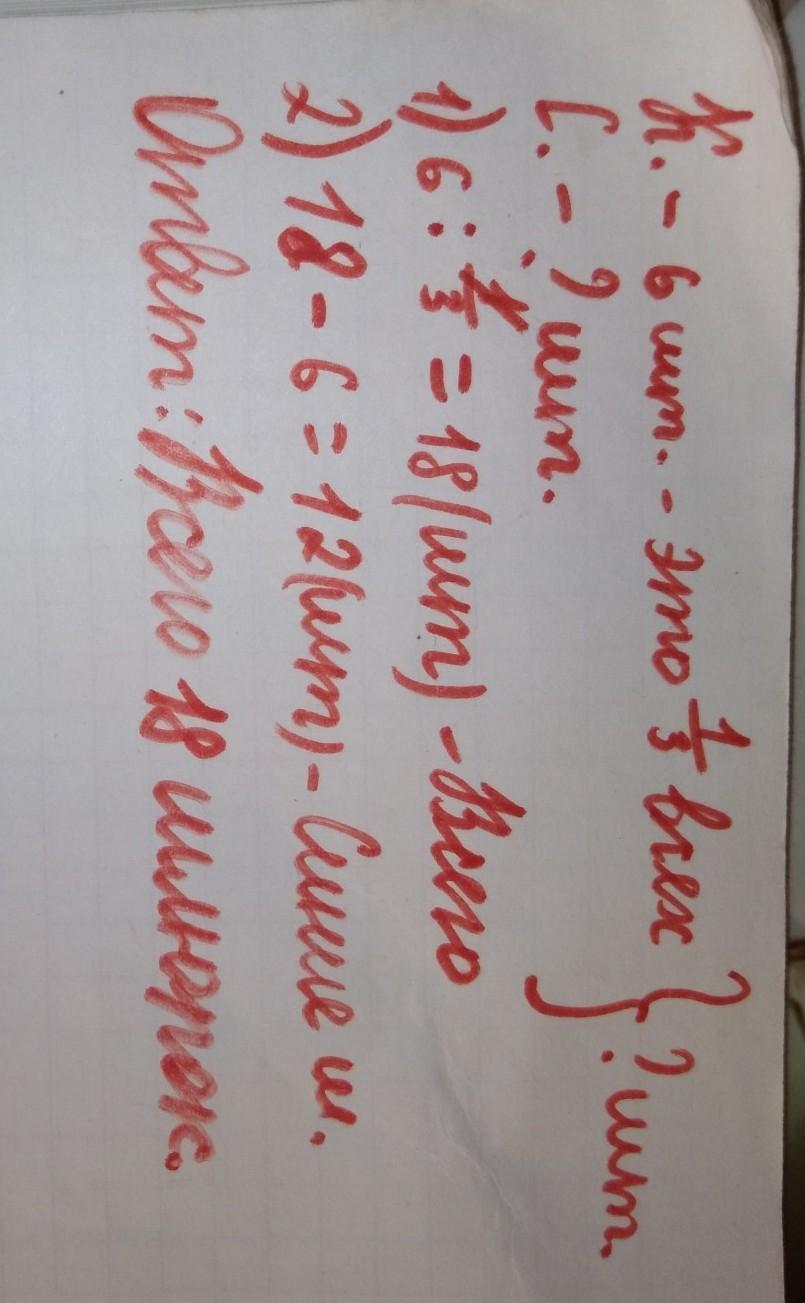 К. - 6 шт. - это 1/3 всех } ? шт.
С. - ? шт.
1) 6 : 1/3 = 18 (шт) - Всего
2) 18 - 6 = 12 (шт) - Синие ш.
Ответ: Всего 18